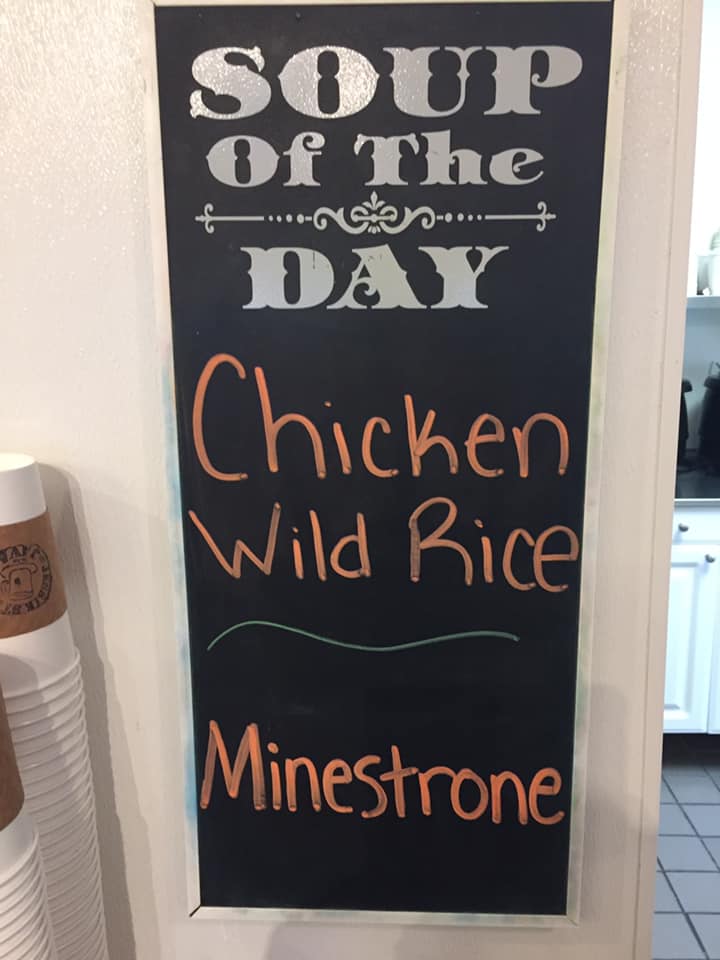 SOUP
Of The
DAY
Chicken
Wild Rice
Minestrone